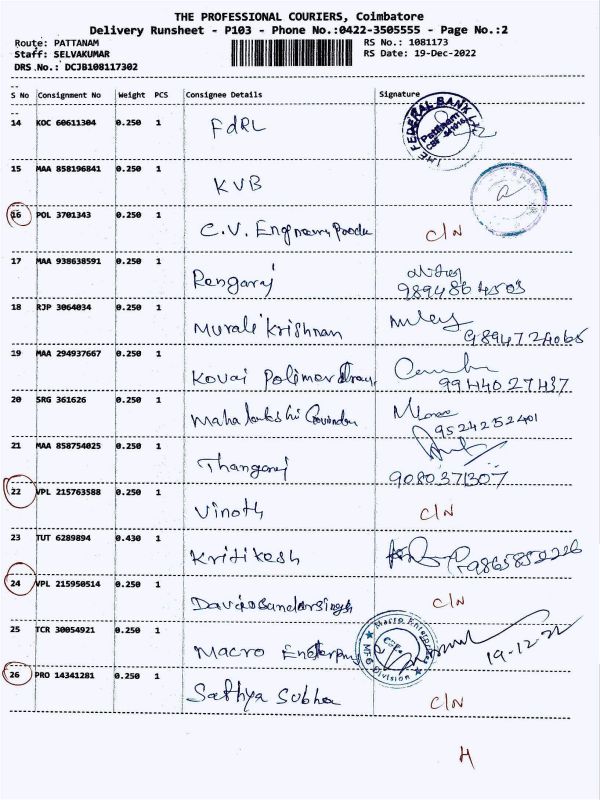 THE PROFESSIONAL COURIERS, Coimbatore
Delivery Runsheet - P103 - Phone No.:0422-3505555 - Page No.:2
Route: PATTANAM RS No.: 1081173
Staff: SELVAKUMAR RS Date: 19-Dec-2022
DRS No.: DCJB108117302
S No Consignment No Weight PCS Consignee Details Signature
14 KOC 60611304 0.250 1 FdRL THE FEDERAL BANK LTD Pattanam
15 MAA 858196841 0.250 1 KVB
16 POL 3701343 0.250 1 C.V. C/N
17 MAA 938638591 0.250 1 Rengaraj 9894864503
18 RJP 3064034 0.250 1 Murali Krishnan
19 MAA 294937667 0.250 1 Kovai 9944027437
20 SRG 361626 0.250 1 9524252401
21 MAA 858754025 0.250 1 Thangaraj 9080371307
22 VPL 215763588 0.250 1 Vinoth C/N
23 TUT 6289894 0.430 1 Kritikesh
24 VPL 215950514 0.250 1 C/N
25 TCR 30054921 0.250 1 Macro 19-12-22
26 PRO 14341281 0.250 1 Sathya Subha C/N